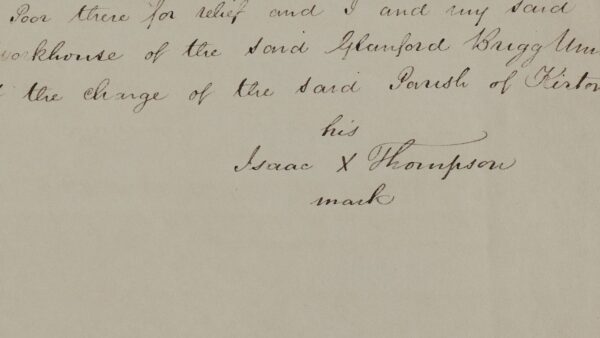 Poor there for relief and I and my said
workhouse of the said Glanford Brigg Un
the charge of the said Parish of Kirton
his
Isaac X Thompson
mark